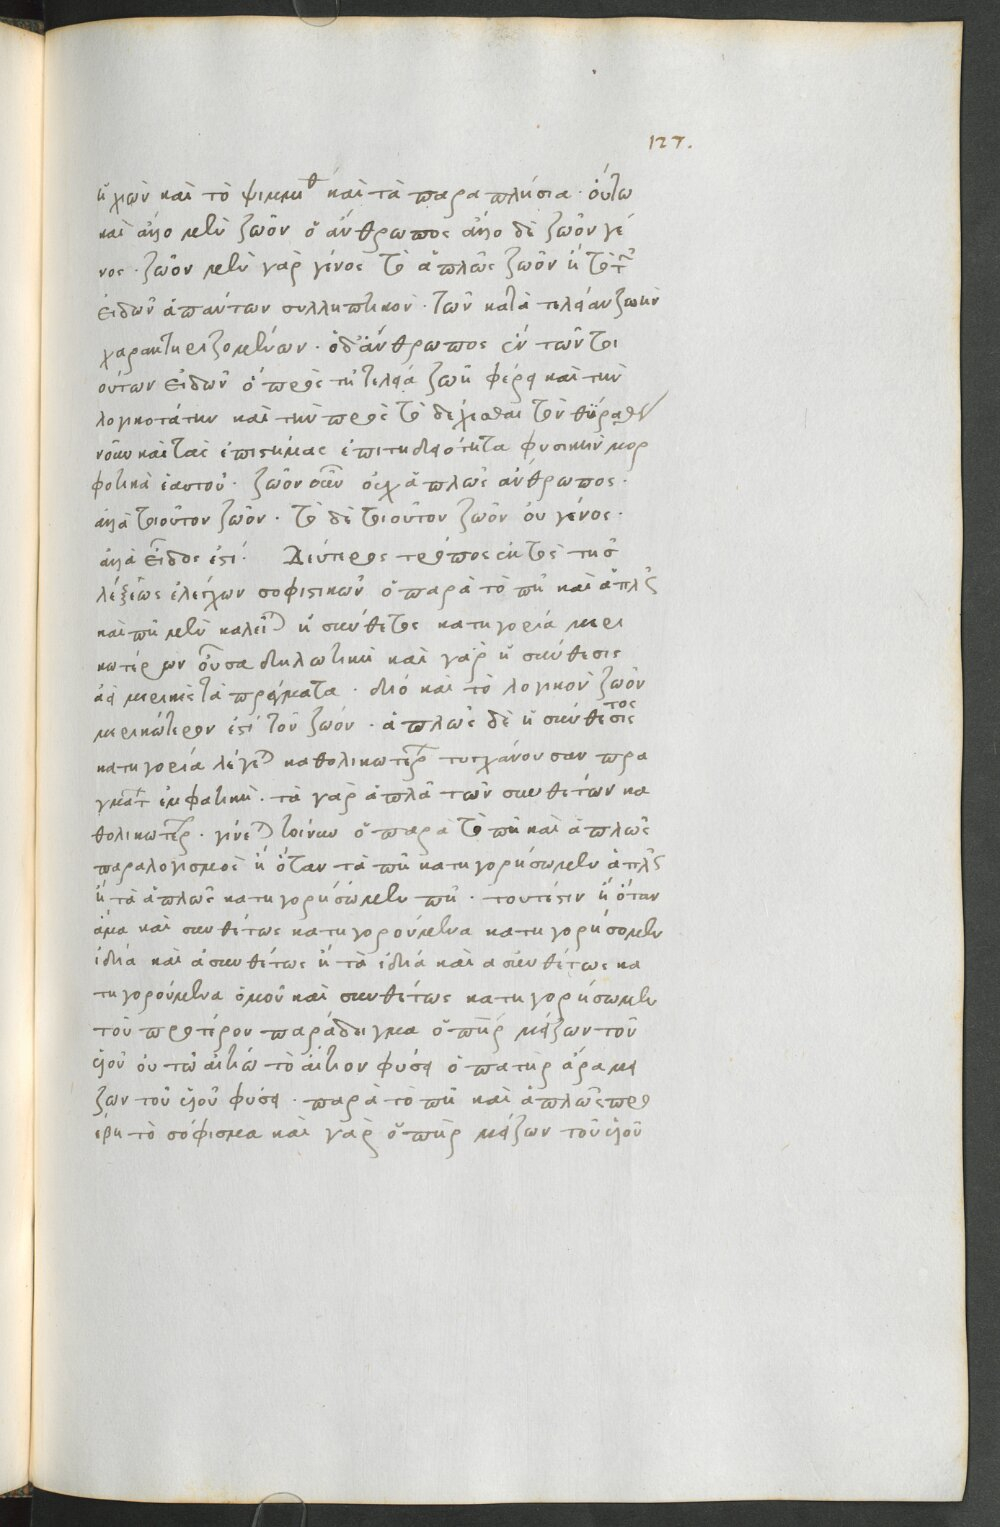 127.
ἡ χιὼν καὶ τὸ ψιμμύθ καὶ τὰ παραπλήσια· οὕτω
καὶ ἄλλο μὲν ζῶον ὁ ἄνθρωπος ἄλλο δὲ ζῶον γέ
νος· ζῶον μὲν γὰρ γένος τὸ ἁπλῶς ζῶον ἢ τὸ τ
εἰδῶν ἁπάντων συλληπτικὸν· τῶν κατὰ ζωὴν
χαρακτηριζομένων· ὁ δ' ἄνθρωπος ἓν τῶν τοι
ούτων εἰδῶν ὁ πρὸς τῇ ζωῇ φέρει καὶ τὴν
λογικοτάτην καὶ τὴν πρὸς τὸ δέχεσθαι τὸν θύραθεν
νοῦν καὶ τὰς ἐπιστήμας ἐπιτηδειότητα φυσικὴν μορ
φωτικὰ ἑαυτοῦ· ζῶον οὖν οὐχ ἁπλῶς ἄνθρωπος·
ἀλλὰ τοιοῦτον ζῶον· τὸ δὲ τοιοῦτον ζῶον οὐ γένος·
ἀλλὰ εἶδος ἐστί· Δεύτερος τρόπος ἐκτὸς τῆς
λέξεως ἐλέγχων σοφιστικῶν ὁ παρὰ τὸ πῇ καὶ ἁπλῶς
καὶ πῇ μὲν καλεῖ ἡ σύνθετος κατηγορία μερι
κωτέρων οὖσα δηλωτικὴ καὶ γὰρ ἡ σύνθεσις
ἀεὶ μερικοῖ τὰ πράγματα· διό καὶ τὸ λογικὸν ζῶον
μερικώτερον ἐστί τοῦ ζῶου· ἁπλῶς δὲ ἡ σύνθεσις τος
κατηγορία λέγε καθολικωτέρ τυγχάνουσαν πρα
γμάτ ἐμφατικὴ· τὰ γὰρ ἁπλᾶ τῶν συνθέτων κα
θολικώτερ· γίνε τοίνυν ὁ παρὰ τὸ πῇ καὶ ἁπλῶς
παραλογισμὸς ἢ ὅταν τὰ πῇ κατηγορήσωμεν ἁπλῶς
ἢ τὰ ἁπλῶς κατηγορήσωμεν πῇ· τουτέστιν ἢ ὅταν
ἅμα καὶ συνθέτως κατηγορούμενα κατηγορήσομεν
ἰδίᾳ καὶ ἀσυνθέτως ἢ τὰ ἰδίᾳ καὶ ασυνθέτως κα
τηγορούμενα ὁμοῦ καὶ συνθέτως κατηγορήσωμεν
τοῦ προτέρου παράδειγμα ὁ πῆρ μείζων τοῦ
υἱοῦ οὐ τῷ αἰτίῳ τὸ αἴτιον φύσει ὁ πατὴρ ἄρα μεί
ζων τοῦ υἱοῦ φύσει· παρὰ τὸ πῇ καὶ ἁπλῶς προ
έβη τὸ σόφισμα καὶ γὰρ ὁ πῆρ μείζων τοῦ υἱοῦ